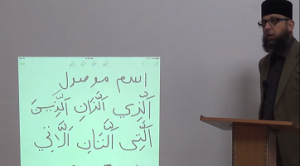 اسم موصول
اَلَّذِي اَللَّذَانِ اَلَّذِيْنَ
اَلَّتِي اَللَّتَانِ اَللَّاتِي